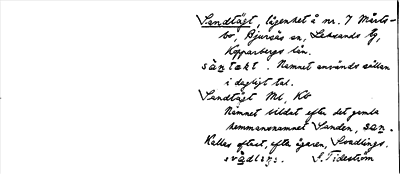 Sandtägt, lägenhet å nr. 7 Mårts-
bo, Bjursås sn, Leksands tg,
Kopparbergs län.
sàntɛkt. Namnet används sällan
i dagligt tal.
Sandtägt Ml, Kb
Namnet bildat efter det gamla
hemmansnamnet Sanden, san.
Kallas oftast, efter ägaren, Svedlings.
S. Tideström